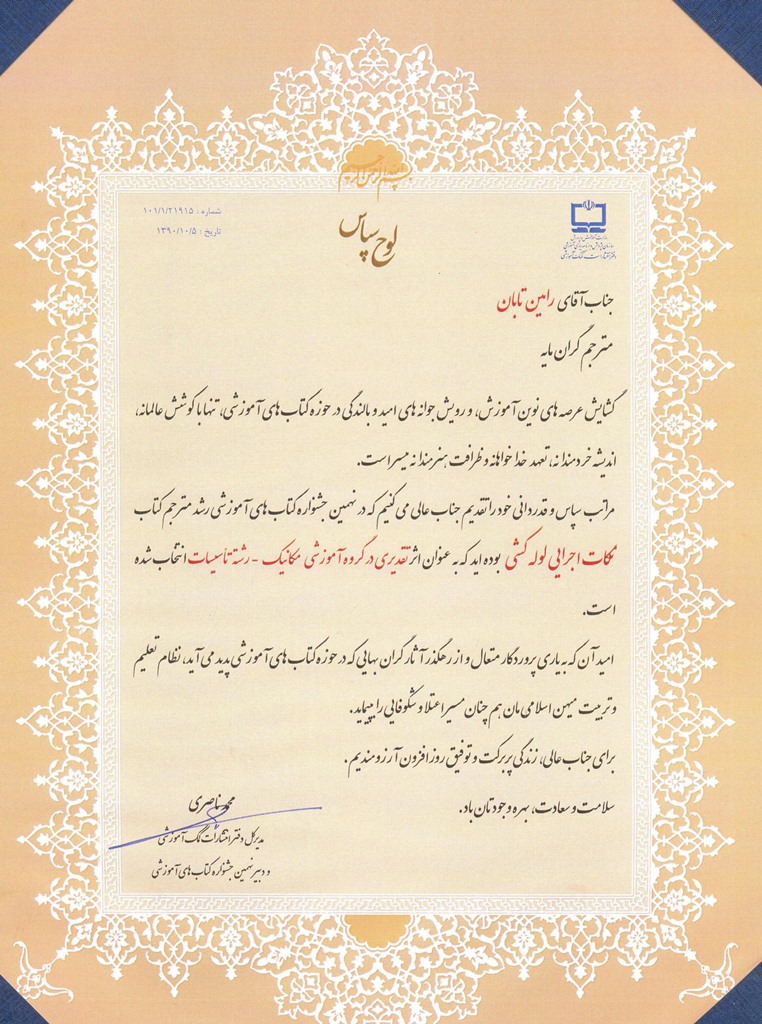 بسم الله الرحمن الرحیم
لوح سپاس
شماره : ۱۰۱/۱/۲۱۹۱۵
تاریخ : ۱۳۹۰/۱۰/۵
وزارت آموزش و پرورش
سازمان پژوهش و برنامه‌ریزی آموزشی
دفتر انتشارات کمک آموزشی
جناب آقای رامین تابان
مترجم گران مایه
گشایش عرصه های نوین آموزش، و رویش جوانه های امید و بالندگی در حوزه کتاب های آموزشی، تنها با کوشش عالمانه،
اندیشه خردمندانه، تعهد خداخواهانه و ظرافت هنرمندانه میسر است.
مراتب سپاس و قدردانی خود را تقدیم جناب عالی می کنیم که در نهمین جشنواره کتاب های آموزشی رشد مترجم کتاب
نکات اجرایی لوله کشی بوده اید که به عنوان اثر تقدیری در گروه آموزشی مکانیک - رشته تاسیسات انتخاب شده
است.
امید آن که به یاری پروردگار متعال و از رهگذر آثار گران بهایی که در حوزه کتاب های آموزشی پدید می آید، نظام تعلیم
و تربیت میهن اسلامی مان هم چنان مسیر اعتلا و شکوفایی را بپیماید.
برای جناب عالی، زندگی پربرکت و توفیق روز افزون آرزومندیم.
سلامت و سعادت، بهره وجودتان باد.
محمد ناصری
مدیر کل دفتر انتشارات کمک آموزشی
و دبیر نهمین جشنواره کتاب های آموزشی